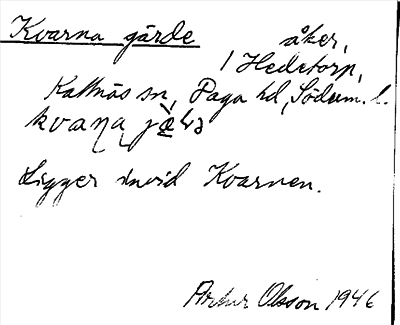 Kvarna gärde åker,
1 Hedetorp,
Kattnäs sn, Daga hd, Söderm. l.
Ligger invid Kvarnen.
Artur Olsson 1946